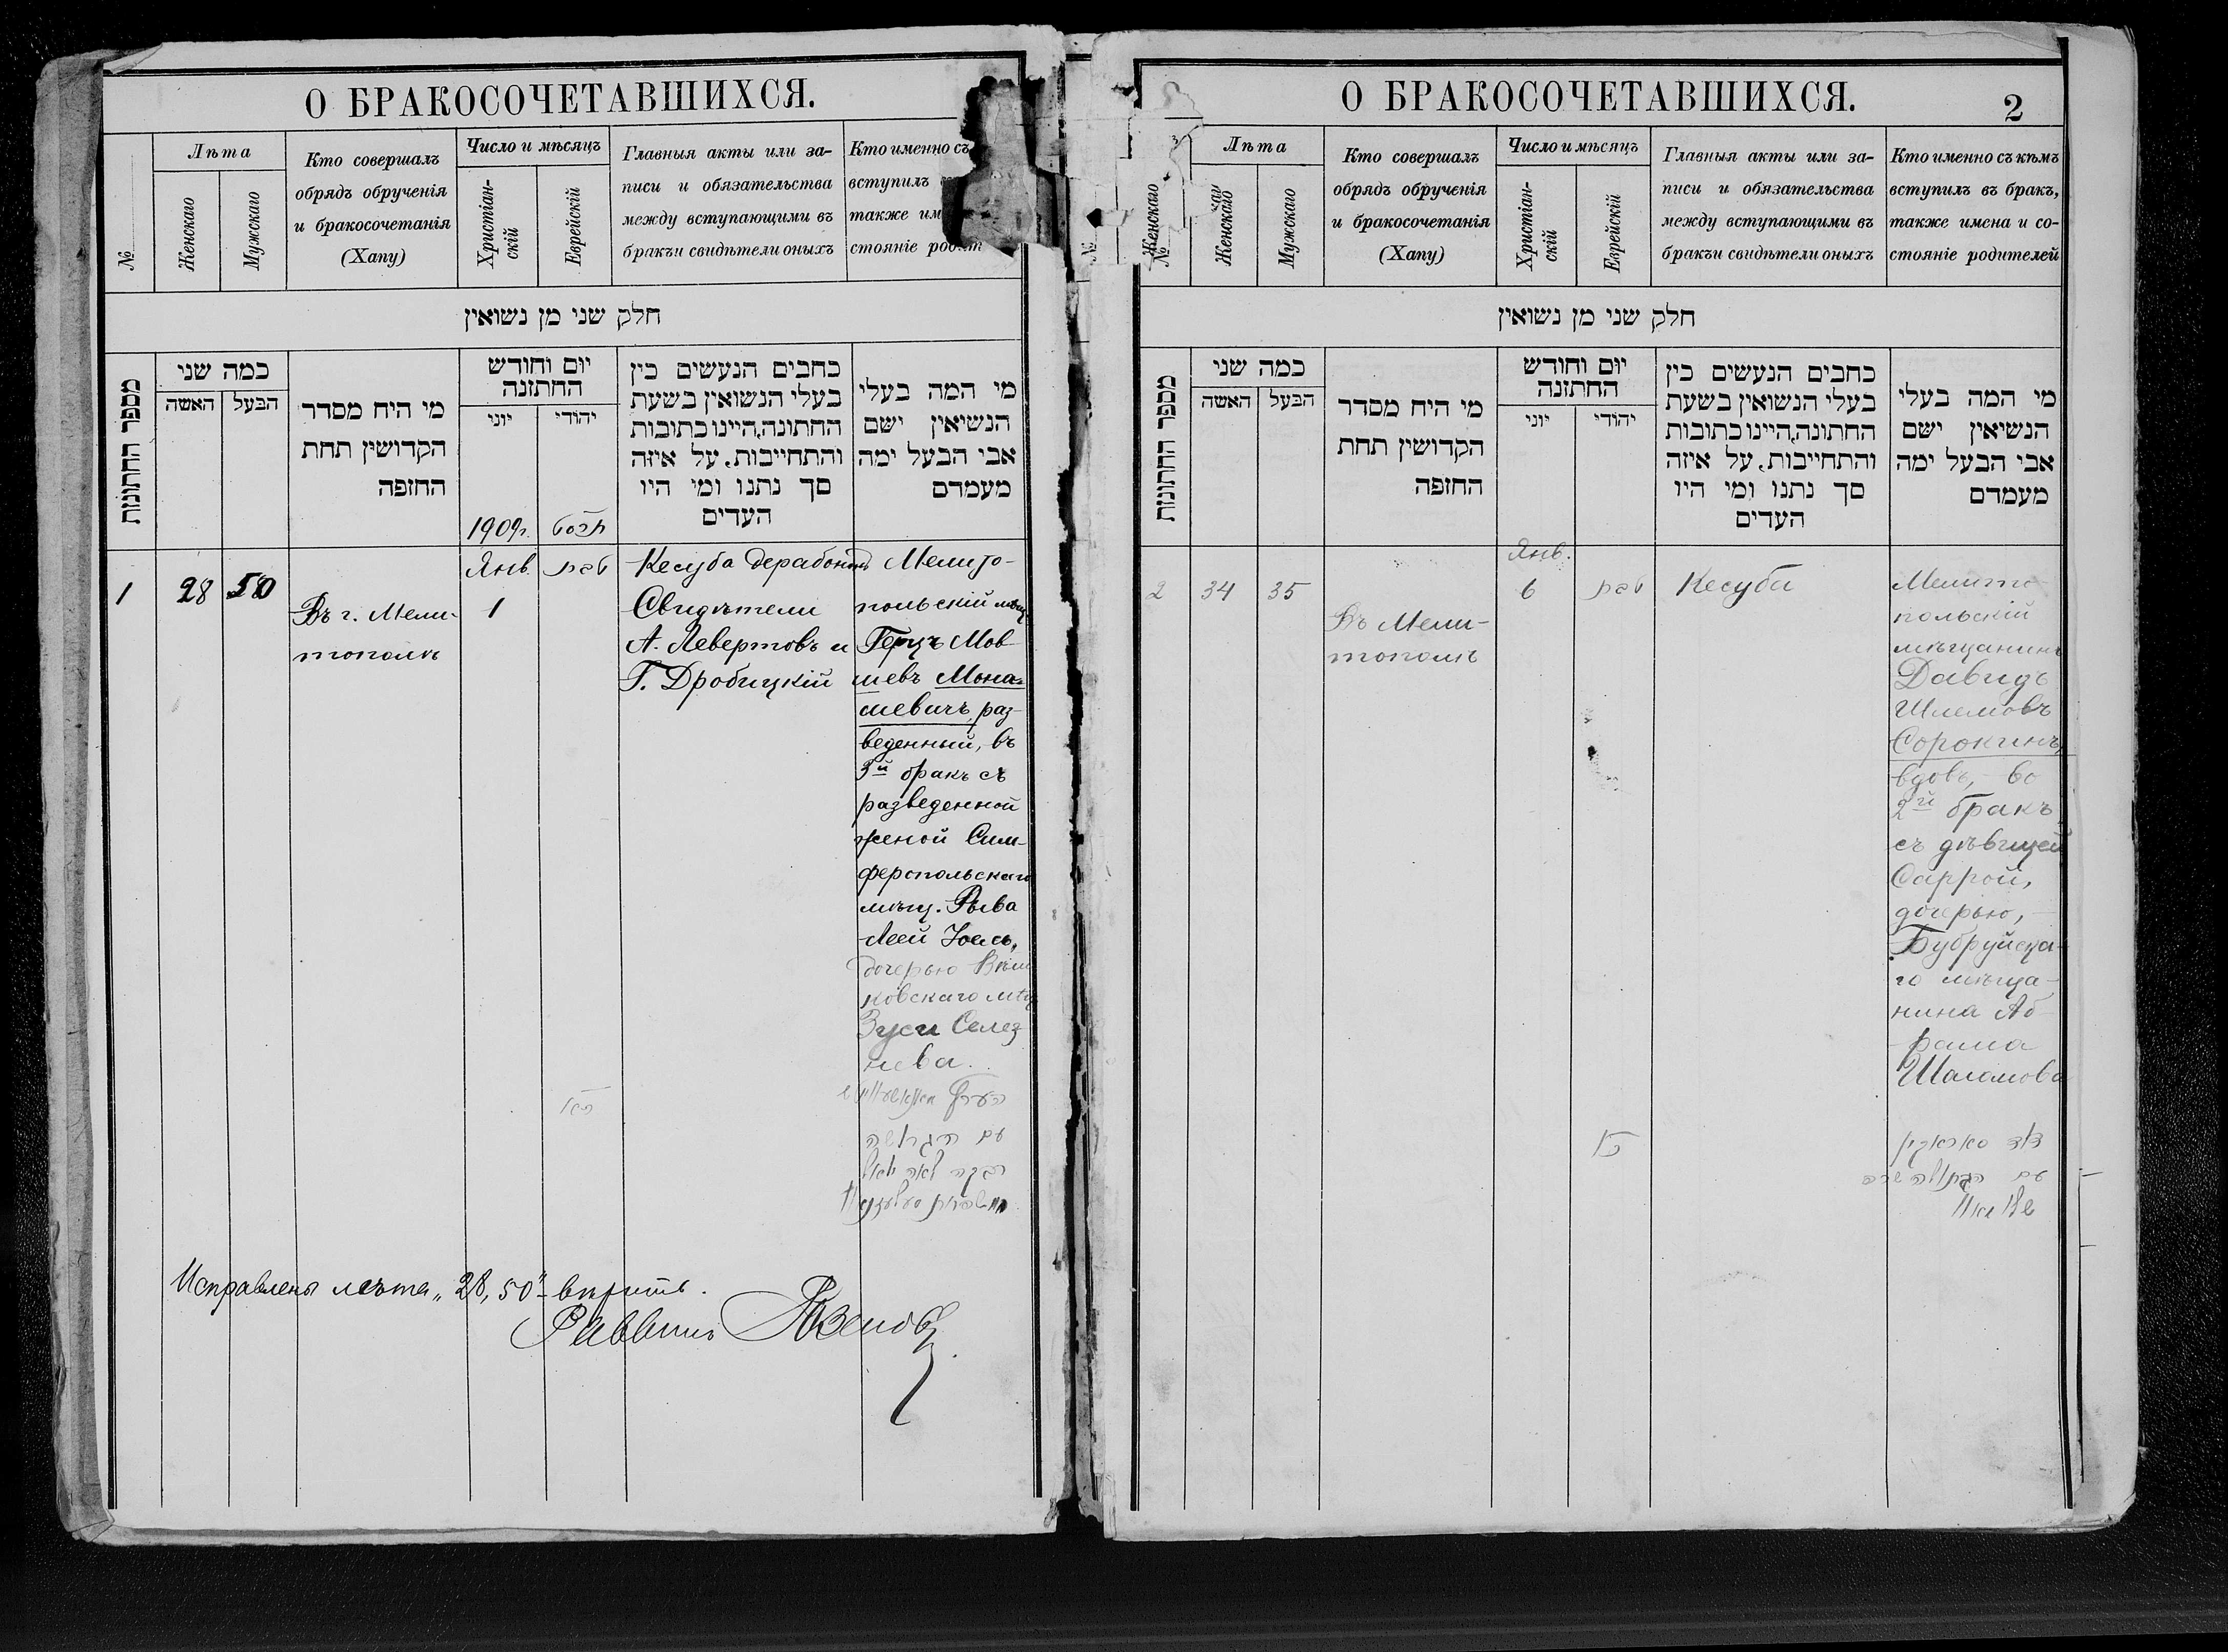 О БРАКОСОЧЕТАВШИХСЯ.
№
Лѣта
Женскаго
Мужскаго
Кто совершалъ
обрядъ обрученія
и бракосочетанія
(Хапу)
Число и мѣсяцъ
Христіан-
скій
Еврейскій
Главныя акты или за-
писи и обязательства
между вступающими въ
бракъи свидѣтели оныхъ
Кто именно съ
вступилъ
также им
стояніе родит
חלק שני מן נשואין
מספר החתונות
כמה שני
האשה
הבעל
מי היח מסדר
הקדושין תחת
החופה
יום וחודש
החתונה
יוני
יהודי
כחבים הנעשים כין
בעלי הנשואין בשעת
החתונה,היינו כתובות
והתחייבות, על איזה
סך נתנו ומי היו
העדים
מי המה בעלי
הנשיאין ישם
אבי הבעל ימה
מעמדם
1909г.
1
28
50
Въ г. Мели-
тополѣ
Янв.
1
טבת
Кесуба дерабононъ
Свидѣтели
А. Левертовъ и
Г. Дробицкій
Мелито-
польскій мѣщ.
Герцъ Мов-
шевъ Мона-
шевичъ, раз-
веденный, въ
3й бракъ съ
разведенной
женой Сим-
феропольскаго
мѣщ. Рыва
Леей Іоель,
дочерью
ковскаго мѣщ
Зуси Селез-
нева.
עם הגרושה
רבקה לאה יואל
Исправлены лѣта „28, 50“ вѣрить.
Раввинъ
О БРАКОСОЧЕТАВШИХСЯ.
2
№
Женскаго
Лѣта
Женскаго
Мужскаго
Кто совершалъ
обрядъ обрученія
и бракосочетанія
(Хапу)
Число и мѣсяцъ
Христіан-
скій
Еврейскій
Главныя акты или за-
писи и обязательства
между вступающими въ
бракъи свидѣтели оныхъ
Кто именно съ кѣмъ
вступилъ въ бракъ,
также имена и со-
стояніе родителей
חלק שני מן נשואין
מספר החתונות
כמה שני
האשה
הבעל
מי היח מסדר
הקדושין תחת
החופה
יום וחודש
החתונה
יוני
יהודי
כחבים הנעשים כין
בעלי הנשואין בשעת
החתונה,היינו כתובות
והתחייבות, על איזה
סך נתנו ומי היו
העדים
מי המה בעלי
הנשיאין ישם
אבי הבעל ימה
מעמדם
2
34
35
Въ Мели-
тополѣ
Янв.
6
טבת
Кесуба
Мелито-
польскій
мѣщанинъ
Давидъ
Шлемовъ
Сорокинъ,
вдов., во
2й бракъ
съ дѣвицей
Саррой,
дочерью,
Бубруйска-
го мѣща-
нина Аб-
рама
Шаломова
דוד סאראקין
עם הבתולה שרה